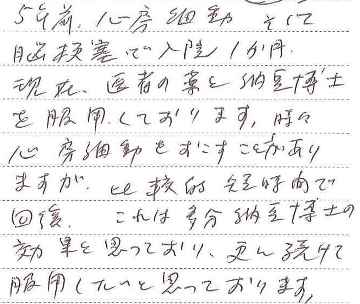 5年前、心房細動 そして
脳梗塞で入院1か月.
現在、医者の薬と納豆博士
を服用しております, 時々
心房細動をおこすことがあり
ますが、比較的短時間で
回復、これは多分納豆博士の
効果と思っており、更に続けて
服用したいと思っております,